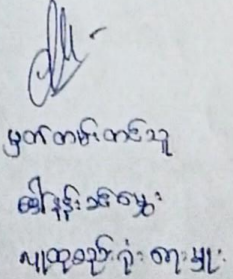 မှတ်တမ်းတင်သူ
ဒေါ်နှင်းခင်မွှေး
လူထုစည်းရုံးရေးမှူး